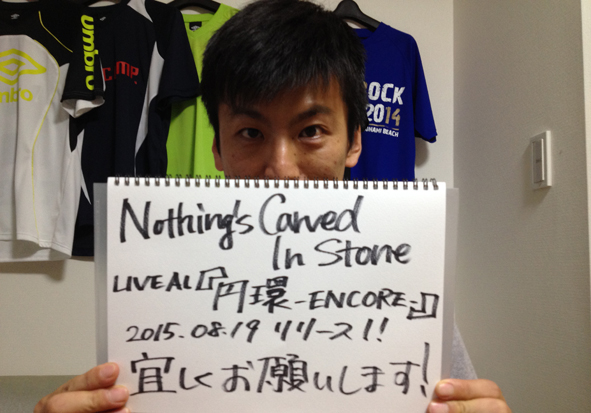 umbro
umbro
CAMP
ROCK
2014
NAMI BEACH
Nothing's Carved
In Stone
LIVE AL『円環-ENCORE-』
2015.08.19 リリース!!
宜しくお願いします!